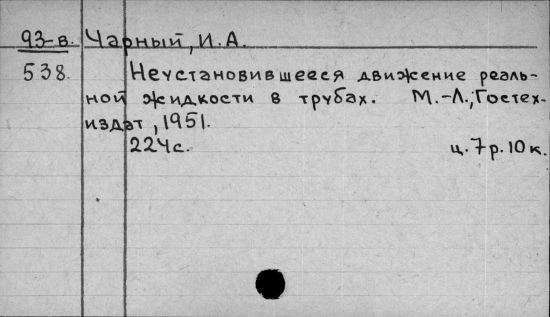 93-в. Чарный, И.А.
538. Неустановившееся движение реаль-
ной жидкости в трубах. М.-Л., Гостех-
издат, 1951.
224с. ц. 7 р. 10 к.